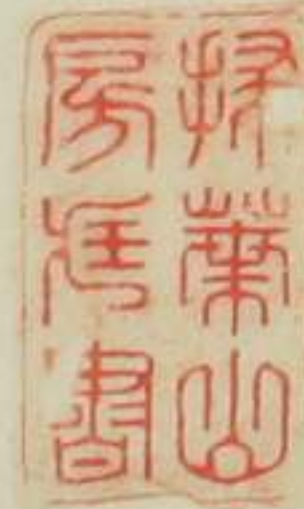 掃葉山
房書